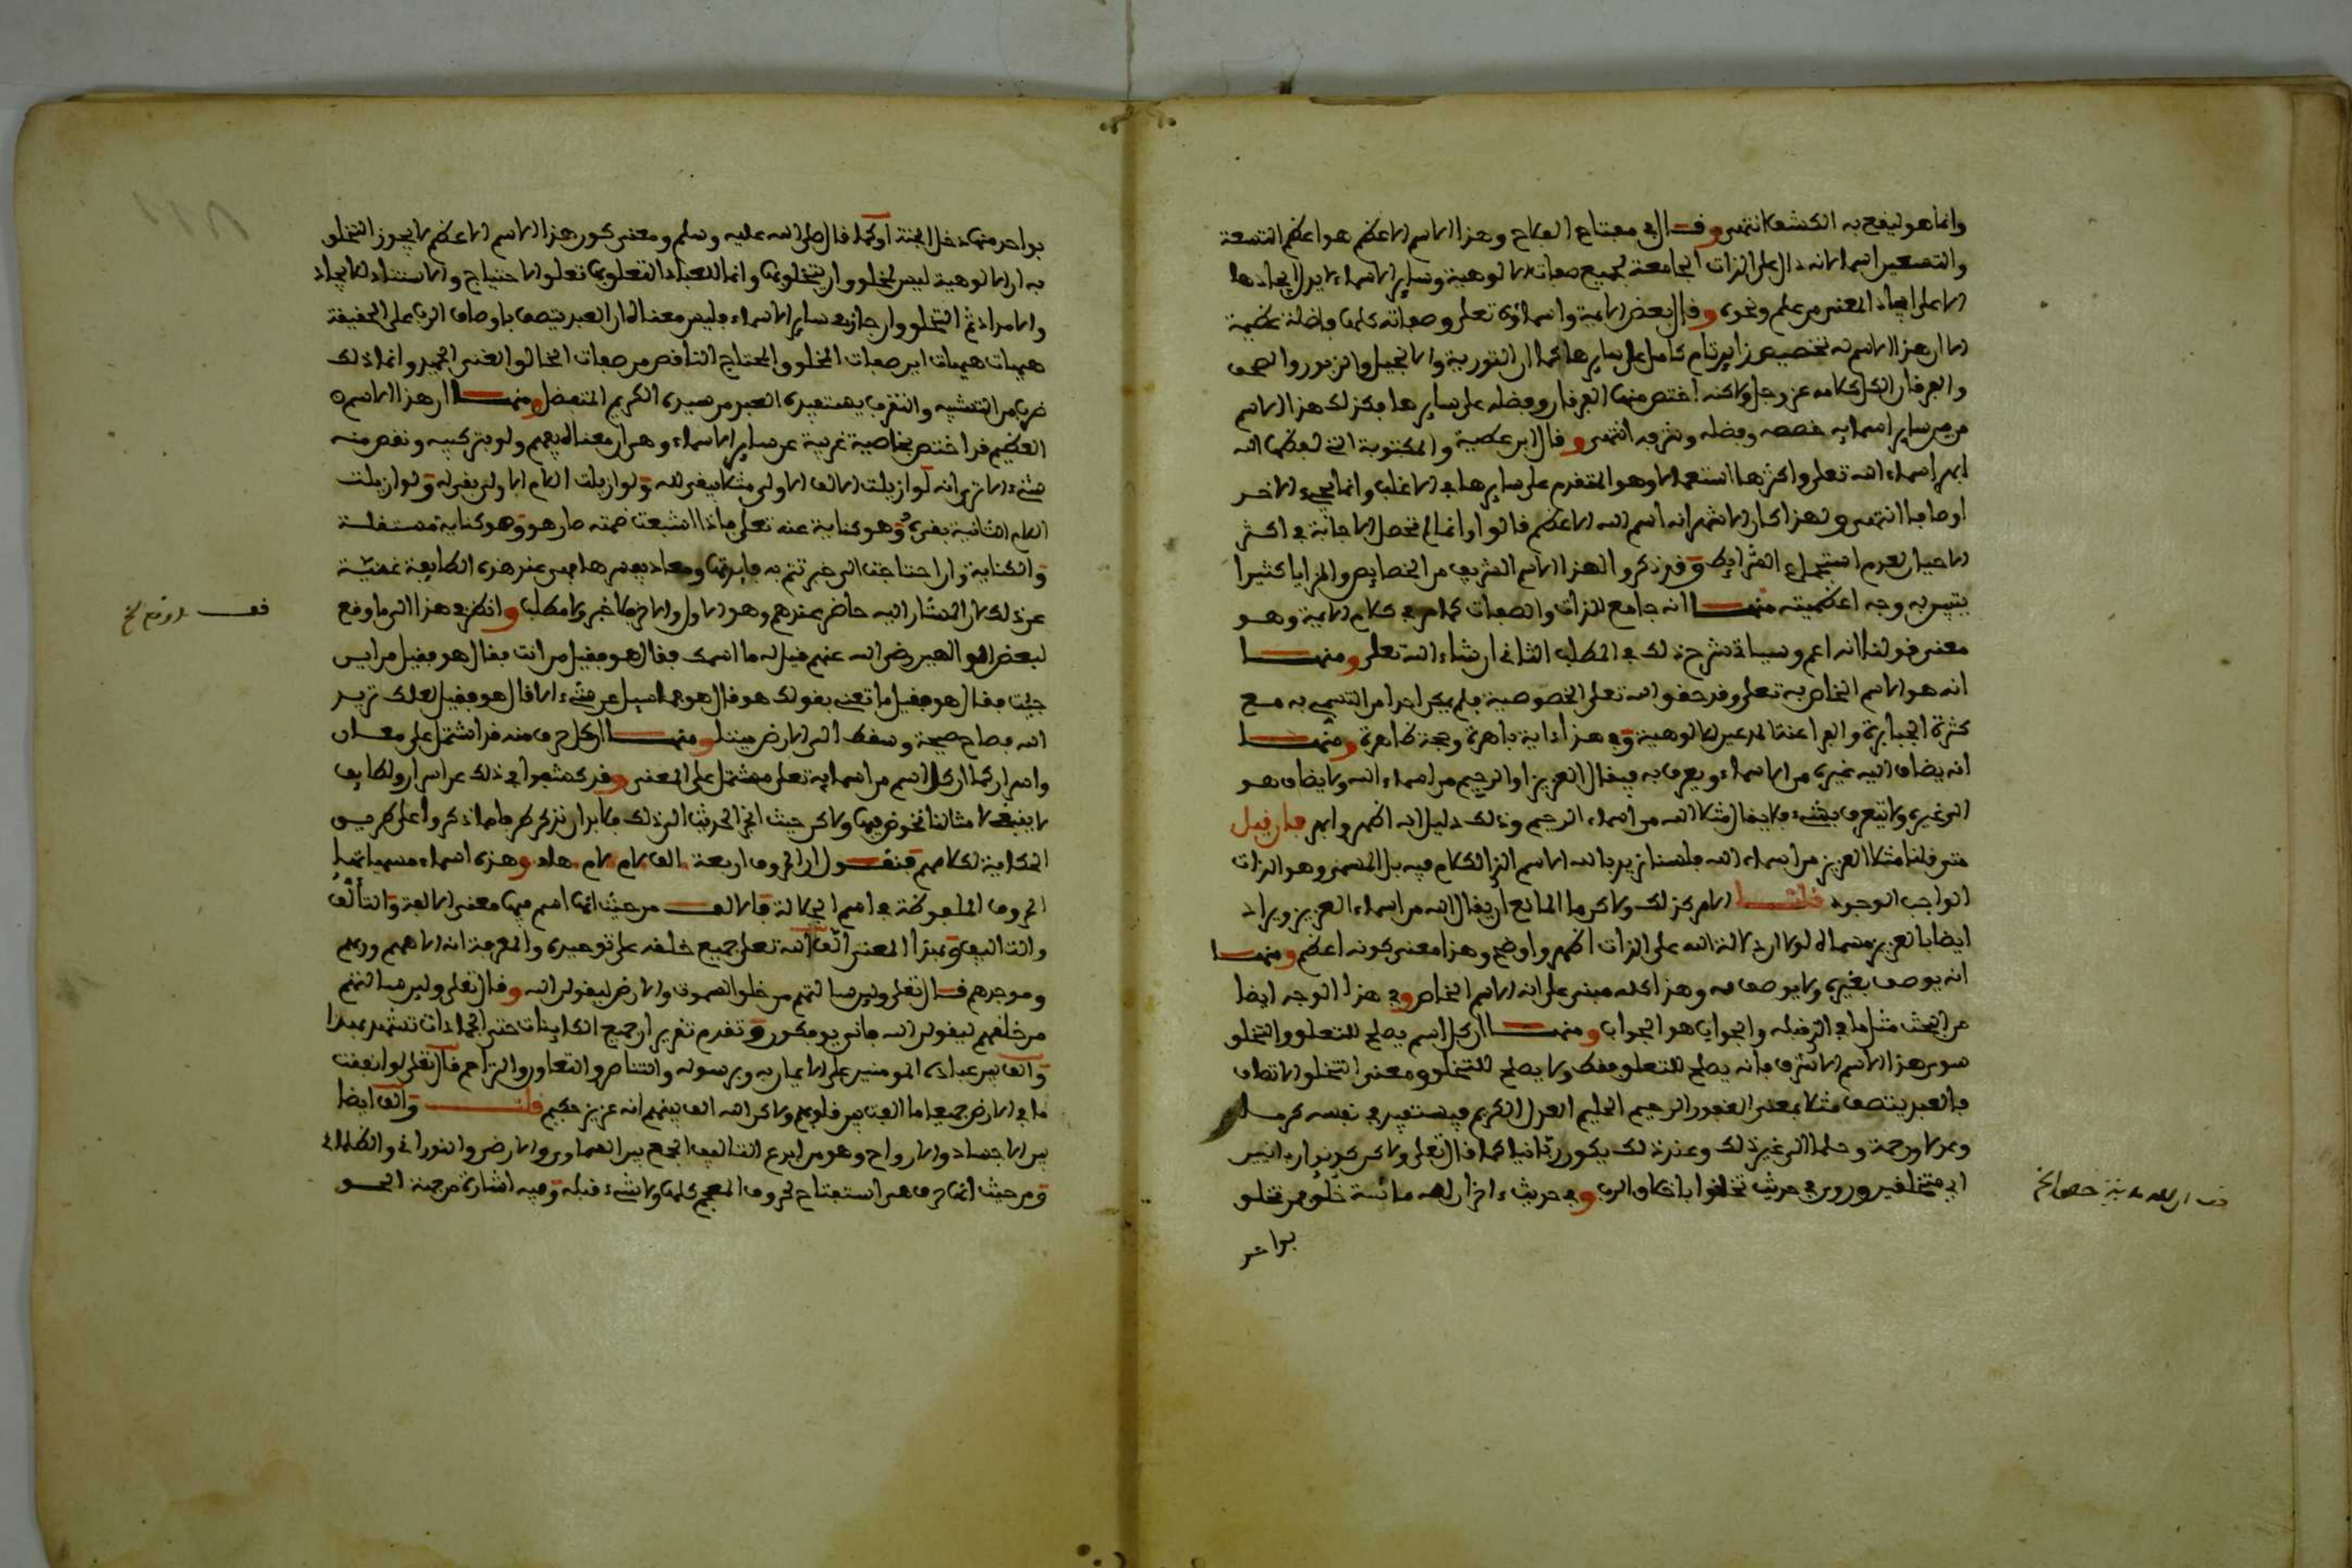 وانما هو ليفع به الكشف انتهى وقال في مفتاح الفلاح وهذا الاسم الاعظم هو اعظم التسعة
والتسعين اسما لانه دال على الذات الجامعة لجميع صفات الالوهية وساير الاسماء لا يدل احادها
الا على احاد المعنى من علم ونحوه وقال بعض الايمة واسماؤه تعلى وصفاته كلها فاضلة عظيمة
الا ان هذا الاسم له تخصيص زايد تام كامل على سايرها كما ان التورية والانجيل والزبور والصحف
والفرقان الكل كلامه عز وجل ولاكنه اختص منها الفرقان وفضله على سايرها فكذلك هذا الاسم
من بين ساير اسمايه خصصه وفضله وشرفه انتهى وقال ابن عطية والمكتوبة التي لفظها الله
ابهر اسماء الله تعلى واكثرها استعمالا وهو المتقدم على سايرها في الاغلب وانما تجيء الاخر
اوصافا انتهى ولهذا كان الاشهر انه اسم الله الاعظم قالوا وانما لم تحصل الاجابة في اكثر
الاحيان لعدم استجماع الشرايط وقد ذكروا لهذا الاسم الشريف من الخصايص والمزايا كثيرا
يتبين به وجه اعظميته منها انه جامع للذات والصفات كما مر في كلام الايمة وهو
معنى قولنا انه اعم وسياتي شرح ذلك في المطلب الثاني ان شاء الله تعلى ومنها
انه هو الاسم الخاص به تعلى وقد حقق الله تعلى الخصوصية فلم يمكن احدا من التسمي به مع
كثرة الجبابرة والفراعنة المدعين للالوهية وفي هذا اية باهرة وحجة ظاهرة ومنها
انه يضاف اليه غيره من الاسماء ويعرف به فيقال العزيز او الرحيم من اسماء الله ولا يضاف هو
الى غيره ولا يتعرف بشيء فلا يقال مثلا الله من اسماء الرحيم وذلك دليل انه اظهر وابهر فان قيل
متى قلنا مثلا العزيز من اسماء الله فلسنا نريد بالله الاسم الذي الكلام فيه بل المسمى وهو الذات
الواجب الوجود قلنا الامر كذلك ولاكن ما المانع ان يقال الله من اسماء العزيز ويراد
ايضا بالعزيز مسماه لولا ان دلالة الله على الذات اظهر واوضح وهذا معنى كونه اعظم ومنها
انه يوصف بغيره ولا يوصف به وهذا كله مبني على انه الاسم الخاص وفي هذا الوجه ايضا
من البحث مثل ما في الذي قبله والجواب هو الجواب ومنها ان كل اسم يصلح للتعلق والتخلق
سوى هذا الاسم الاشرف فانه يصلح للتعلق فقط ولا يصلح للتخلق ومعنى التخلق الاتصاف
فالعبد يتصف مثلا بمعنى الغفور الرحيم الحليم العدل الكريم فيستفيد في نفسه كرما
وعدلا ورحمة وحلما الى غير ذلك وعند ذلك يكون ربانيا كما قال تعلى ولاكن كونوا ربانيين
اي متخلقين وروي في حديث تخلقوا باخلاق الله وفي حديث اخر ان لله مائة خلق من تخلق
بواحد
بواحد منها دخل الجنة او كما قال صلى الله عليه وسلم ومعنى كون هذا الاسم الاعظم لا يجوز التخلق
به ان الالوهية ليس لمخلوق ان يتخلق بها وانما للعباد التعلق بها تعلق الاحتياج والاستناد للايجاد
والامداد ثم التخلق وان جاز في ساير الاسماء فليس معناه ان العبد يتصف باوصاف الرب على الحقيقة
هيهات هيهات اين صفات المخلوق المحتاج الناقص من صفات الخالق الغني الحميد وانما ذلك
ضرب من التشبيه والتقرب يستفيده العبد من سيده الكريم المتفضل ومنها ان هذا الاسم
العظيم قد اختص بخاصية غريبة عن ساير الاسماء وهي ان معناه يفهم ولو بتركيبه ونقص منه
شيء الا ترى انه لو ازيلت الالف الاولى مثلا يبقى لله ولو ازيلت اللام الاولى يبقى له ولو ازيلت
اللام الثانية يبقى ه وهو كناية عنه تعلى فاذا اشبعت ضمته صار هو وهو كناية مستقلة
والكناية وان احتاجت الى خبر تتم به فايدتها ومعاد يفسرها فهي عند هذه الطايفة غنية
عن ذلك لان المشار اليه حاضر عندهم وهو الاول والاخر فلا خبر ولا مطلب وانظر في هذا الى ما وقع
لبعض الوالهين رضي الله عنهم قيل له ما اسمك فقال هو فقيل من انت فقال هو فقيل من اين
جئت فقال هو فقيل ما تعني بقولك هو قال هو فما سيل عن شيء الا قال هو فقيل لعلك تريد
الله فصاح صيحة وسقط الى الارض ميتا ومنها ان كل حرف منه قد اشتمل على معان
واسرار كما ان كل اسم من اسمايه تعلى مشتمل على المعنى وقد كشفوا في ذلك عن اسرار ولطايف
لا ينبغي لامثالنا نخوض فيها ولاكن حيث انجر الحديث الى ذلك فلا بد ان نذكر طرفا مما ذكروا على طريق
الحكاية لكلامهم فنقول ان الحروف اربعة الف لام لام هاء وهذه اسماء مسمياتها
الحروف الملفوظة في اسم الجلالة فالالف من حيث انها اسم فيها معنى الالفة والتألف
والتاليف وبهذا المعنى الف الله تعلى جميع خلقه على توحيده والمعرفة انه الاههم وربهم
وموجدهم قال تعلى ولين سالتهم من خلق السموت والارض ليقولن الله وقال تعلى ولين سالتهم
من خلقهم ليقولن الله فانى يوفكون وتقدم تقرير ان جميع الكاينات حتى الجمادات تشهد بهذا
والف بين عباده المومنين على الايمان به وبرسوله والتناصر والتعاون والتراحم قال تعلى لو انفقت
ما في الارض جميعا ما الفت بين قلوبهم ولاكن الله الف بينهم انه عزيز حكيم قلت والف ايضا
بين الاجساد والارواح وهو من ابدع التاليف الجمع بين السماوي والارضي والنوراني والظلماني
ومن حيث انها حرف هي استفتاح لحروف المعجم كلها ولا شيء قبله وفيه اشارة من جهة الحق